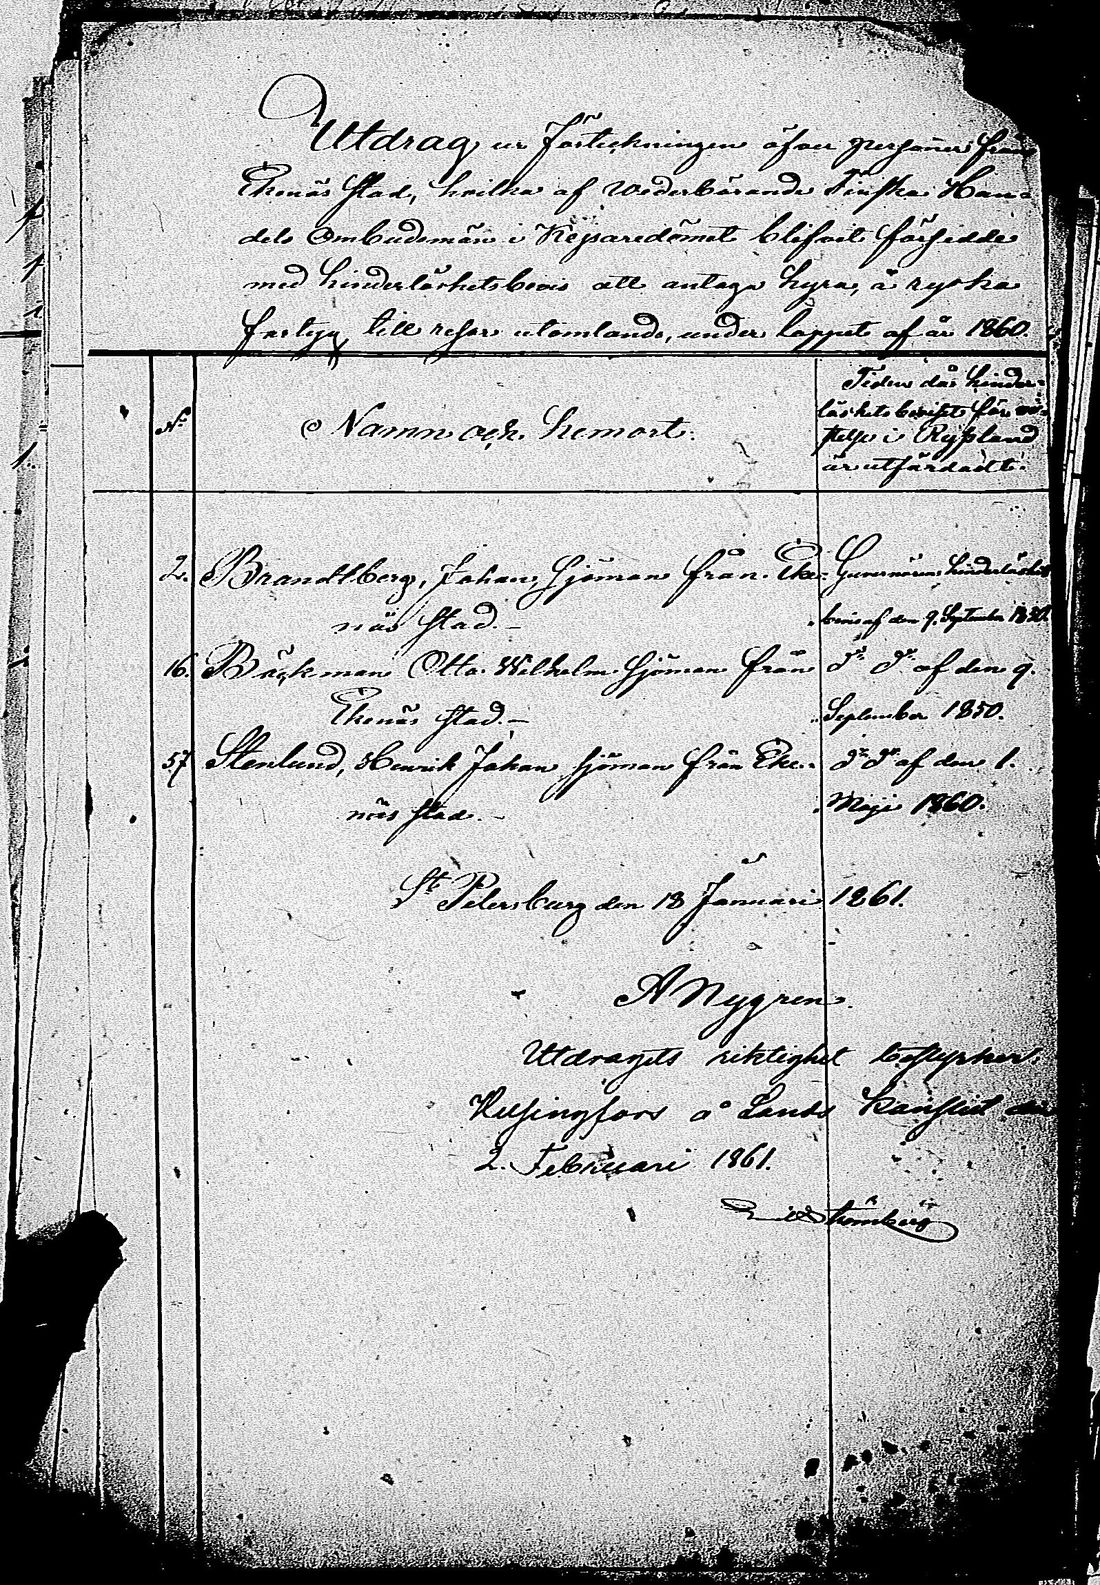 Utdrag ur Förteckningen öfver personer från
Ekenäs stad, hvilka af wederbörande Finska Han-
dels Ombudsmän i Kejsaredömet blifvit försedde
med hinderlöshetsbevis att antaga hyra, å ryska
fartyg till resor utomlands, under loppet af år 1860.
No
Namn och hemort.
Tiden då hinder-
löshets beviset för vi-
stelse i Ryssland
är utfärdadt.
2. Brandtberg, Johan, Sjöman från Eke-
näs stad.-
Guvernörens hinderlöshets
bevis af den 9. September 1850.
16. Bäckman Otto Wilhelm Sjöman från
Ekenäs stad.-
do do af den 9.
September 1850.
57 Stenlund, Henrik Johan Sjöman från Eke-
näs stad.-
do do af den 1.
Maji 1860.
St Petersburg den 18 Januari 1861.
A Nygren.
Utdragets riktighet bestyrker.
Helsingfors å Lands Kansliet den
2. Februari 1861.
Strömberg